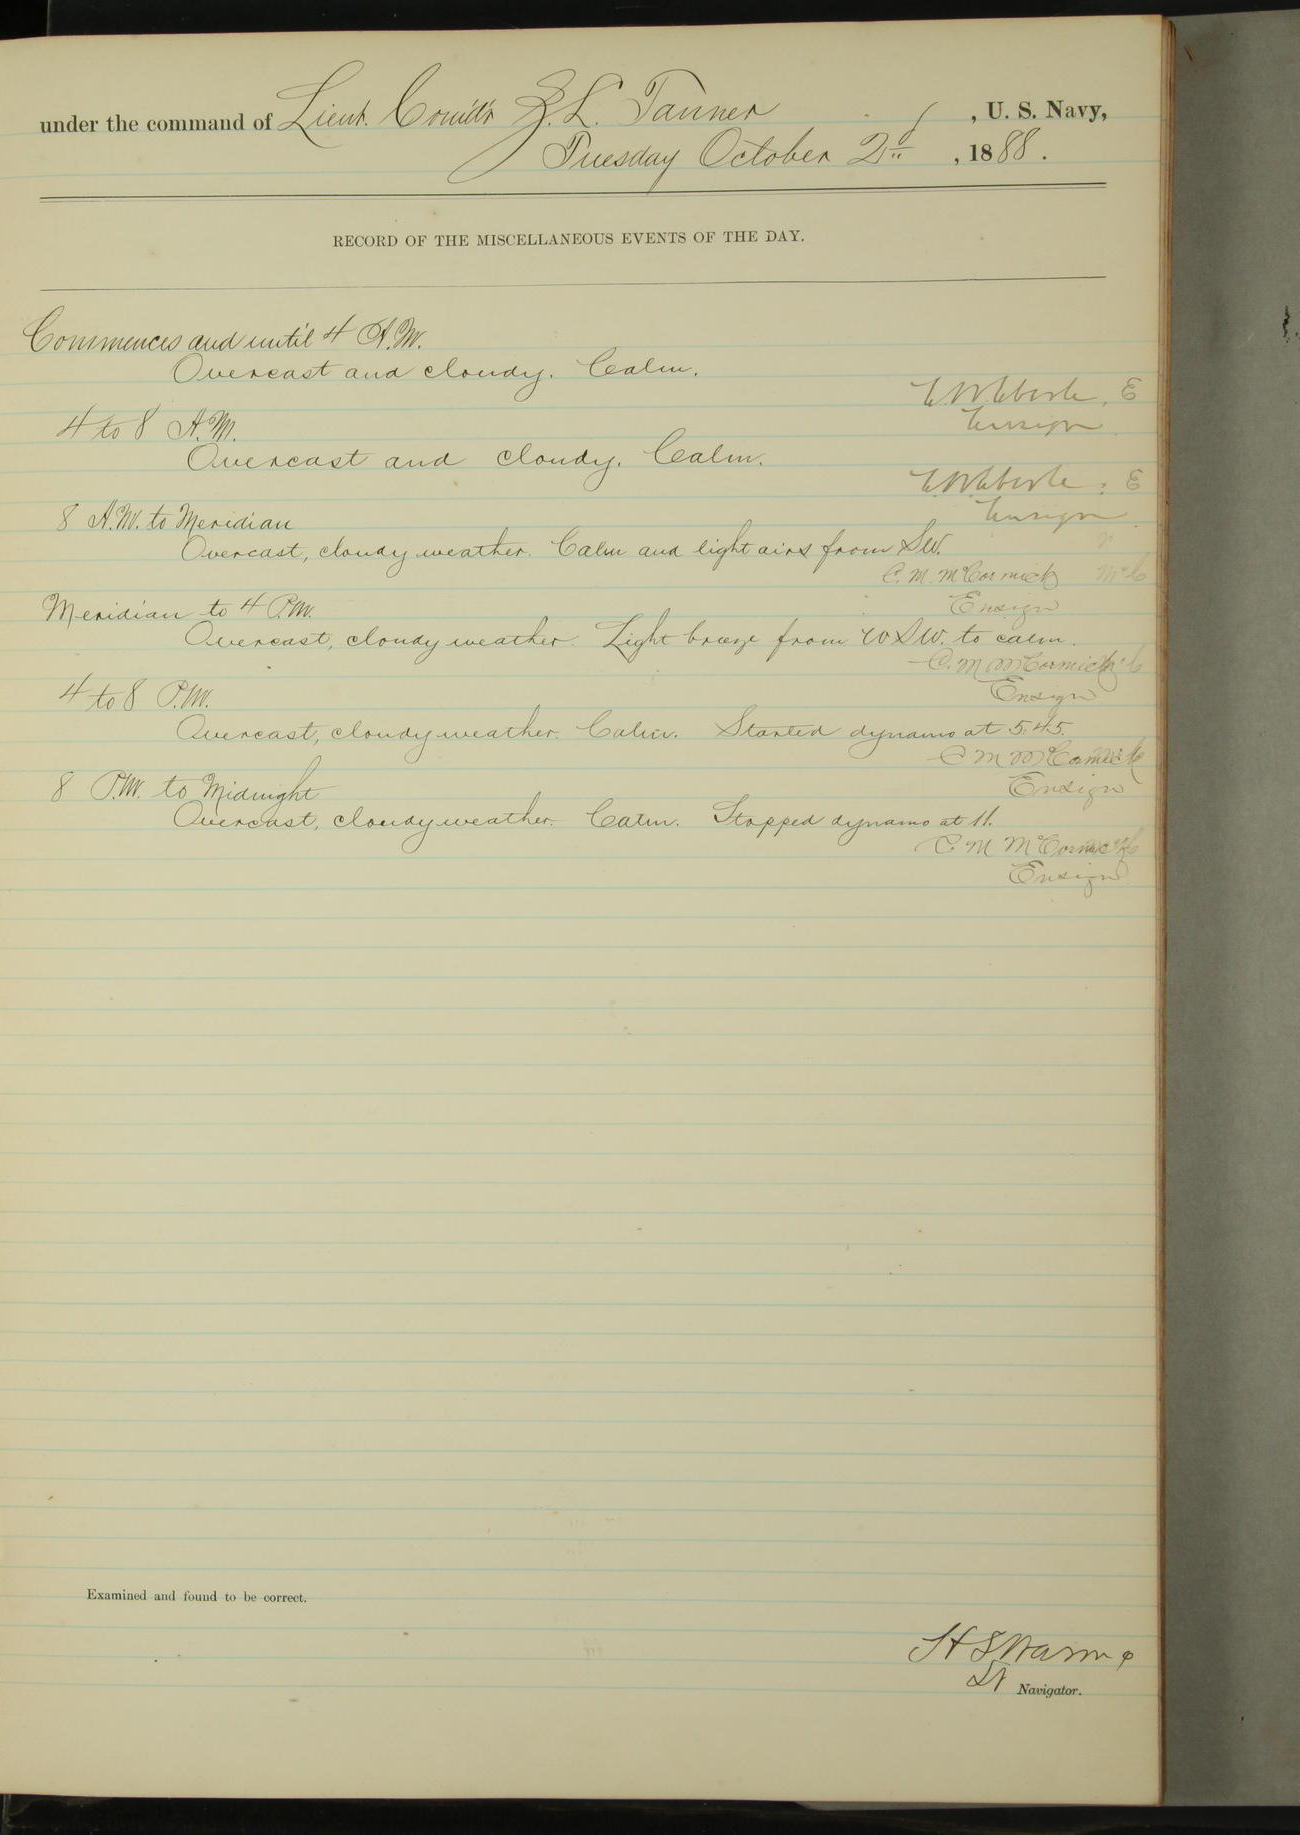 under the command of Lieut. Comd'r Z. L. Tanner, U. S. Navy,
Tuesday October 2d, 1888.
RECORD OF THE MISCELLANEOUS EVENTS OF THE DAY.
Commences and until 4 A.M.
Overcast and cloudy. Calm.
E. W. Eberle, E
Ensign
4 to 8 A.M.
Overcast and cloudy. Calm.
E. W. Eberle, E
Ensign
8 A.M. to Meridian
Overcast, cloudy weather. Calm and light airs from SW.
C. M. McCormick
Ensign
Meridian to 4 P.M.
Overcast, cloudy weather. Light breeze from WSW. to calm.
C. M. McCormick
Ensign
4 to 8 P.M.
Overcast, cloudy weather. Calm. Started dynamo at 5.45.
C M McCormick
Ensign
8 P.M. to Midnight
Overcast, cloudy weather. Calm. Stopped dynamo at 11.
C M McCormick
Ensign
Examined and found to be correct.
Navigator.